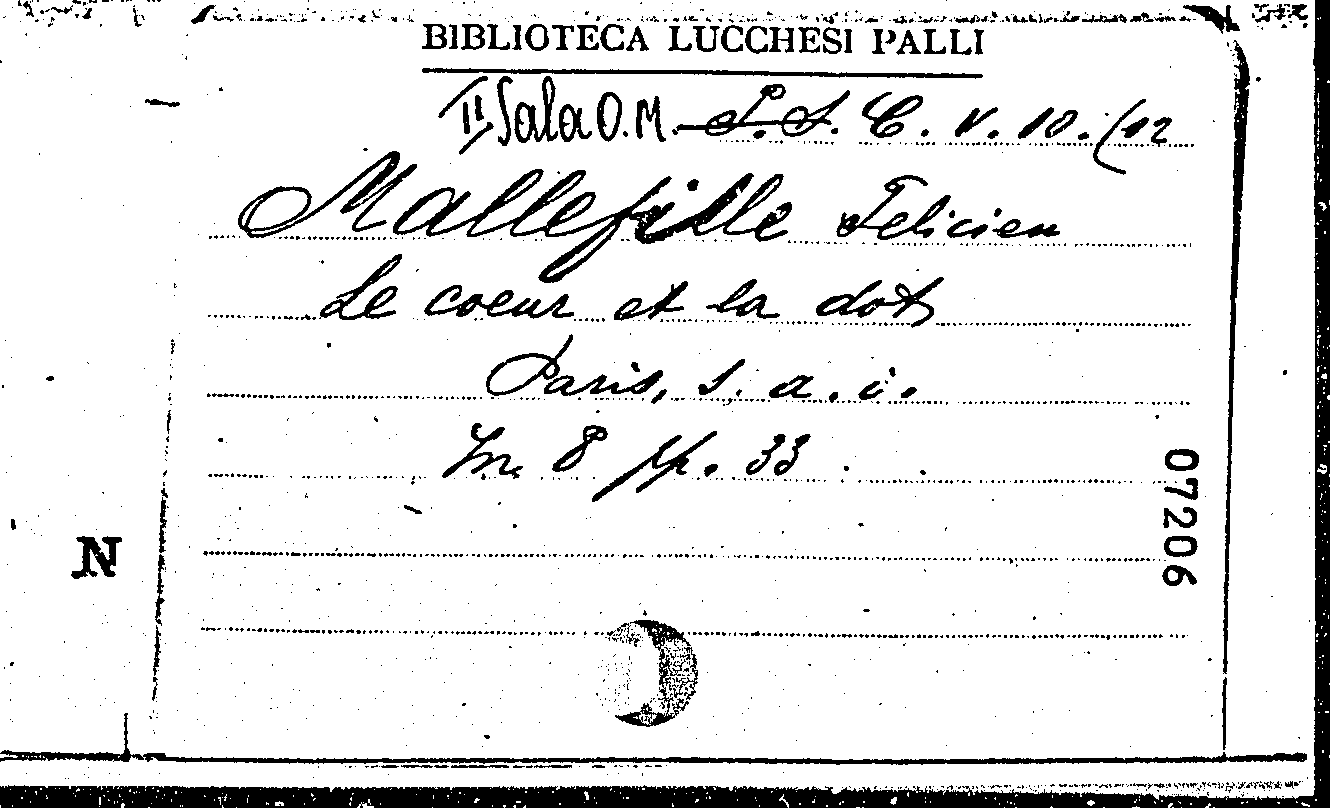 BIBLIOTECA LUCCHESI PALLI
II Sala O.M. P.S. C. V. 10. (12
Mallefille Felicien
Le coeur et la dot
Paris, s. a. i.
In 8 pp. 33
07206
N